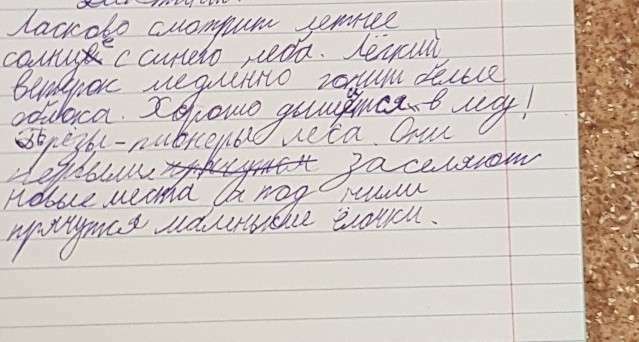 Ласково смотрит летнее
солнце с синего неба. Лёгкий
ветерок медленно гонит белые
облока. Хорошо дышется в лесу!
Берёзы - пионеры леса. Они
первыми заселяют
новые места а под ними
прячутся маленькие ёлочки.